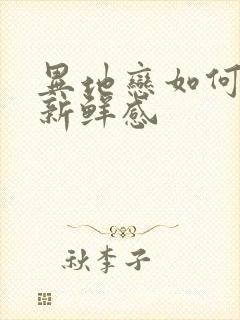 異地戀如何
新鮮感
秋李子